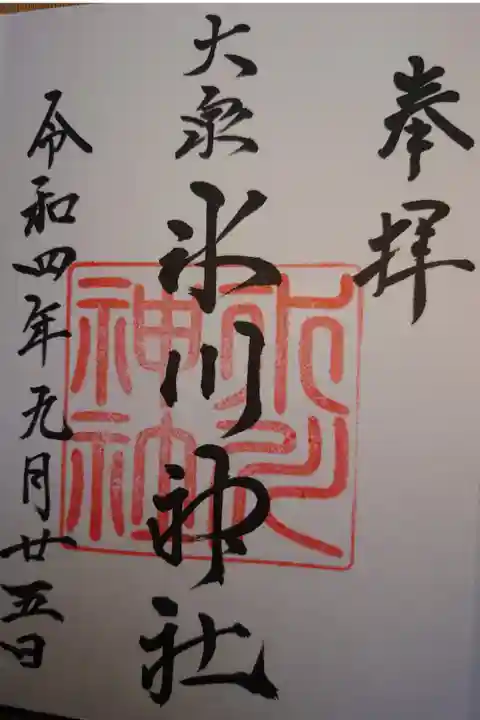 奉拝
大泉
氷川神社
氷川
神社
令和四年元月廿五日